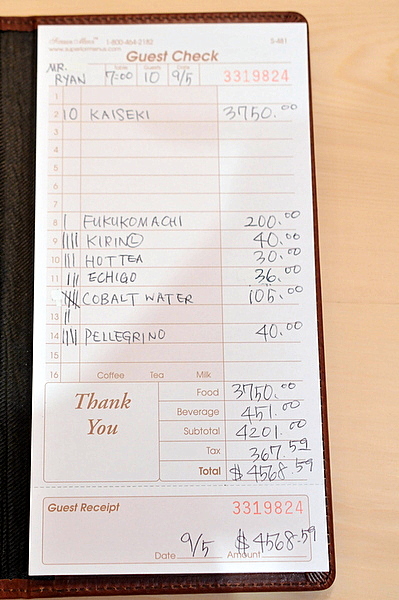 1-800-464-2182 S-481
www.superiormenus.com
Guest Check
MR. RYAN 7:00 10 9/5 3319824
Table Guests Date
1
2 10 KAISEKI 3750.00
3
4
5
6
7
8 | FUKUKOMACHI 200.00
9 |||| KIRIN Ⓛ 40.00
10 ||| HOT TEA 30.00
11 ||| ECHIGO 36.00
12 |||| COBALT WATER 105.00
13 ||
14 |||| PELLEGRINO 40.00
15
16 Coffee Tea Milk
Thank You
Food 3750.00
Beverage 451.00
Subtotal 4201.00
Tax 367.59
Total $4568.59
Guest Receipt 3319824
Date 9/5 Amount $4568.59